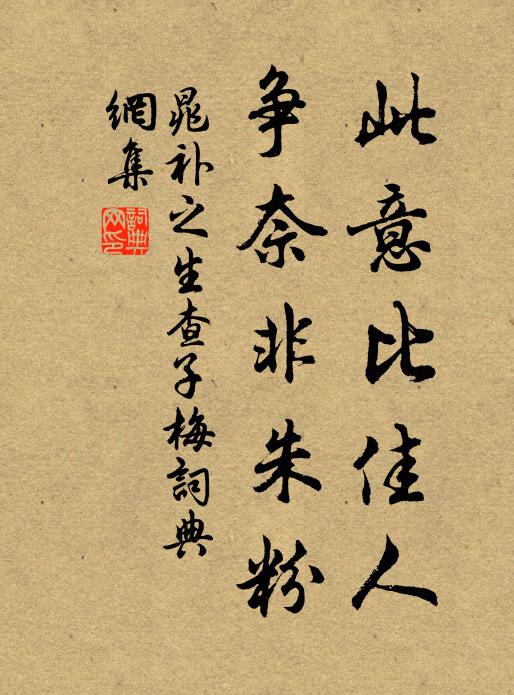 此意比佳人
争奈非朱粉
晁补之生查子梅詞典
網集
詞典網印